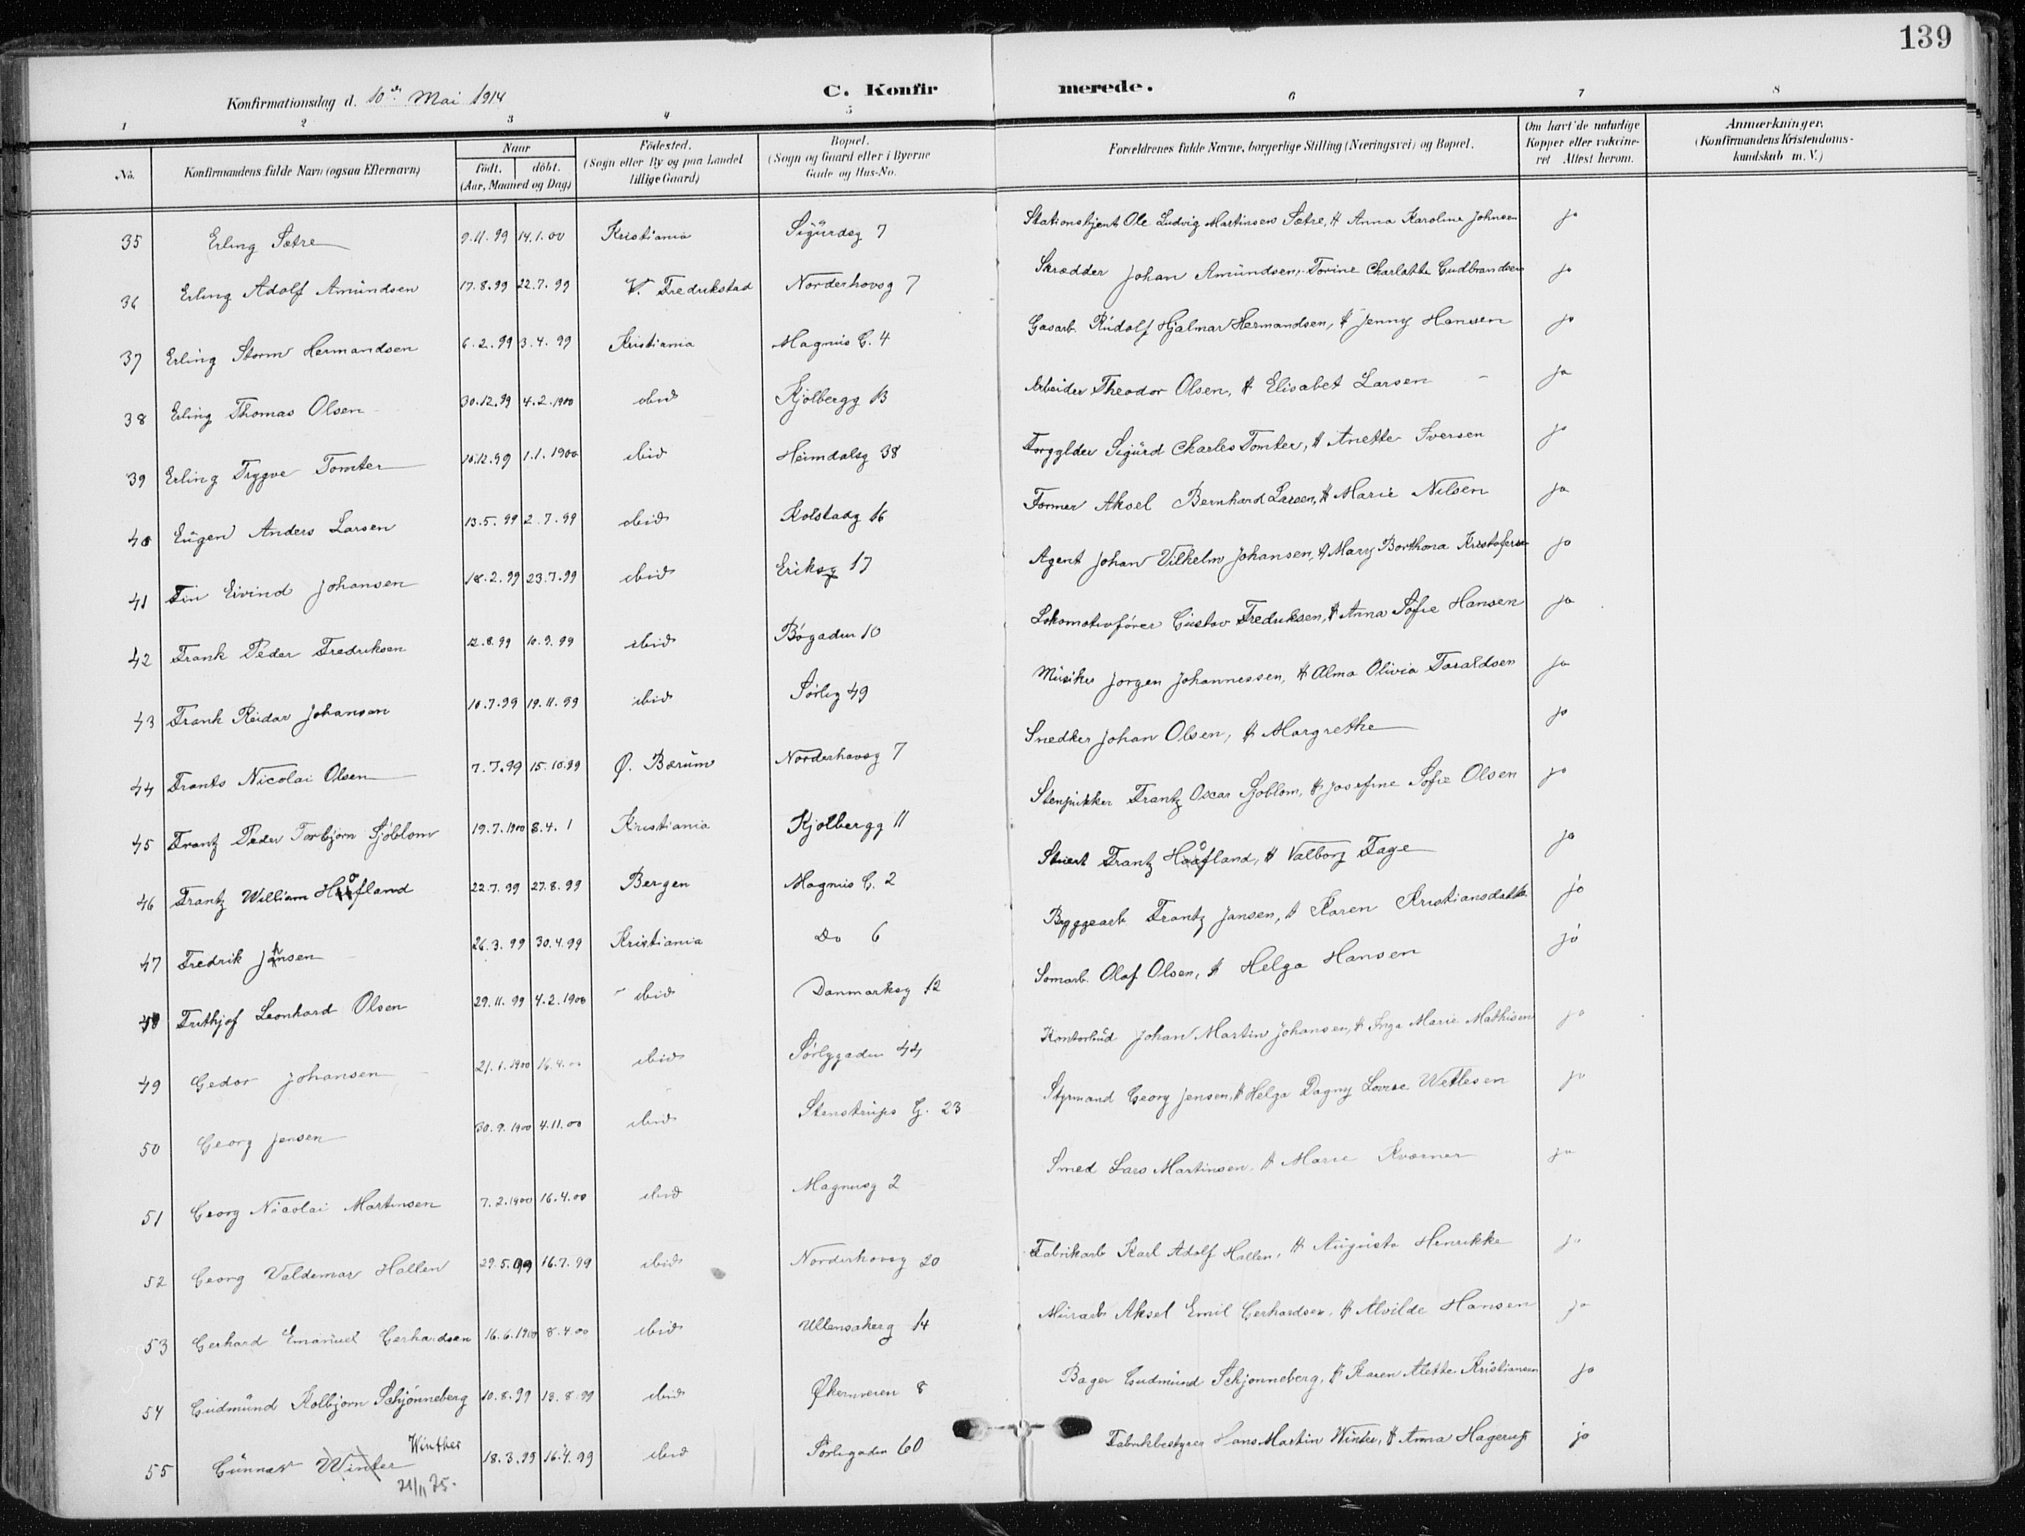 139
Konfirmationsdag d. 10de Mai 1914
C. Konfirmerede.
1 2 3 4 5 6 7 8
No. Konfirmandens fulde Navn (ogsaa Efternavn) Naar født. døbt. (Aar, Maaned og Dag) Fødested. (Sogn eller By og paa Landet tillige Gaard) Bopæl. (Sogn og Gaard eller i Byerne Gade og Hus-No. Forældrenes fulde Navne, borgerlige Stilling (Næringsvei) og Bopæl. Om havt de naturlige Kopper eller vakcineret Attest herom. Anmærkninger. (Konfirmandens Kristendomskundskab m. V.)
35 Erling Sætre 9.11.99 14.1.00 Kristiania Sigurdsg 7 Stationsbtjent Ole Ludvig Martinsen Sætre, & Anna Karoline Johnsen ja
36 Erling Adolf Amundsen 17.8.99 22.7.99 V. Fredrikstad Norderhovsg 7 Skrædder Johan Amundsen, Torine Charlotte Gudbrandsen ja
37 Erling Storm Hermandsen 6.2.99 3.4.99 Kristiania Magnus G. 4 Gasarb. Rudolf Hjalmar Hermandsen, & Jenny Hansen ja
38 Erling Thomas Olsen 30.12.99 4.2.1900 ibid Kjølbergg 13 Arbeider Theodor Olsen, & Elisabet Larsen ja
39 Erling Trygve Tomter 10.12.99 1.1.1900 ibid Heimdalsg 38 Forgylder Sigurd Charles Tomter, & Anette Iversen ja
40 Eugen Anders Larsen 13.5.99 2.7.99 ibid Kolstadg 16 Former Aksel Bernhard Larsen, & Marie Nilsen ja
41 Fin Eivind Johansen 18.2.99 23.7.99 ibid Eriksg 17 Agent Johan Vilhelm Johansen, & Mary Borthona Kristofersen ja
42 Frank Peder Fredriksen 12.8.99 10.9.99 ibid Bøgaden 10 Lokomotivfører Gustav Fredriksen, & Anna Sofie Hansen ja
43 Frank Reidar Johansen 10.7.99 19.11.99 ibid Sørlig 49 Musiker Jørgen Johannessen, & Alma Olivia Taraldsen ja
44 Frants Nicolai Olsen 7.7.99 15.10.99 Ø. Bærum Norderhovsg 7 Snedker Johan Olsen, & Margrethe ja
45 Frantz Peder Torbjørn Sjöblom 19.7.1900 8.4.1 Kristiania Kjølbergg 11 Stenpikker Frantz Oscar Sjöblom, & Josefine Sofie Olsen ja
46 Frantz William Håfland 22.7.99 27.8.99 Bergen Magnus G. 2 Stuert Frantz Håfland, & Valborg Fage ja
47 Fredrik Jansen 26.3.99 30.4.99 Kristiania Do 6 Byggearb Frantz Jansen, & Karen Kristiansdatter ja
48 Frithjof Leonhard Olsen 29.11.99 4.2.1900 ibid Danmarksg 12 Somarb. Olaf Olsen, & Helga Hansen ja
49 Gedor Johansen 21.1.1900 16.4.00 ibid Sørliggaden 44 Kontorbud Johan Martin Johansen, & Inga Marie Mathisen ja
50 Georg Jensen 30.9.1900 4.11.00 ibid Stenstrups G. 23 Styrmand Georg Jensen, & Helga Dagny Lovise Wetlesen ja
51 Georg Nicolai Martinsen 7.2.1900 16.4.00 ibid Magnusg 2 Smed Lars Martinsen. & Marie Kværner ja
52 Georg Valdemar Hallen 29.5.99 16.7.99 ibid Norderhovsg 20 Fabrikarb Karl Adolf Hallen, & Augusta Henrikke ja
53 Gerhard Emanuel Gerhardsen 16.6.1900 8.4.00 ibid Ullensakerg 14 Murarb Aksel Emil Gerhardsen. & Alvilde Hansen ja
54 Gudmund Kolbjørn Schjønneberg 10.8.99 13.8.99 ibid Økernveien 8 Bager Gudmund Schjønneberg, & Karen Alette Kristiansen ja
55 Gunnar Winter Winther 21/11 25. 18.3.99 16.4.99 ibid Sørligaden 60 Fabrikbestyrer Hans Martin Winter, & Anna Hagerup ja